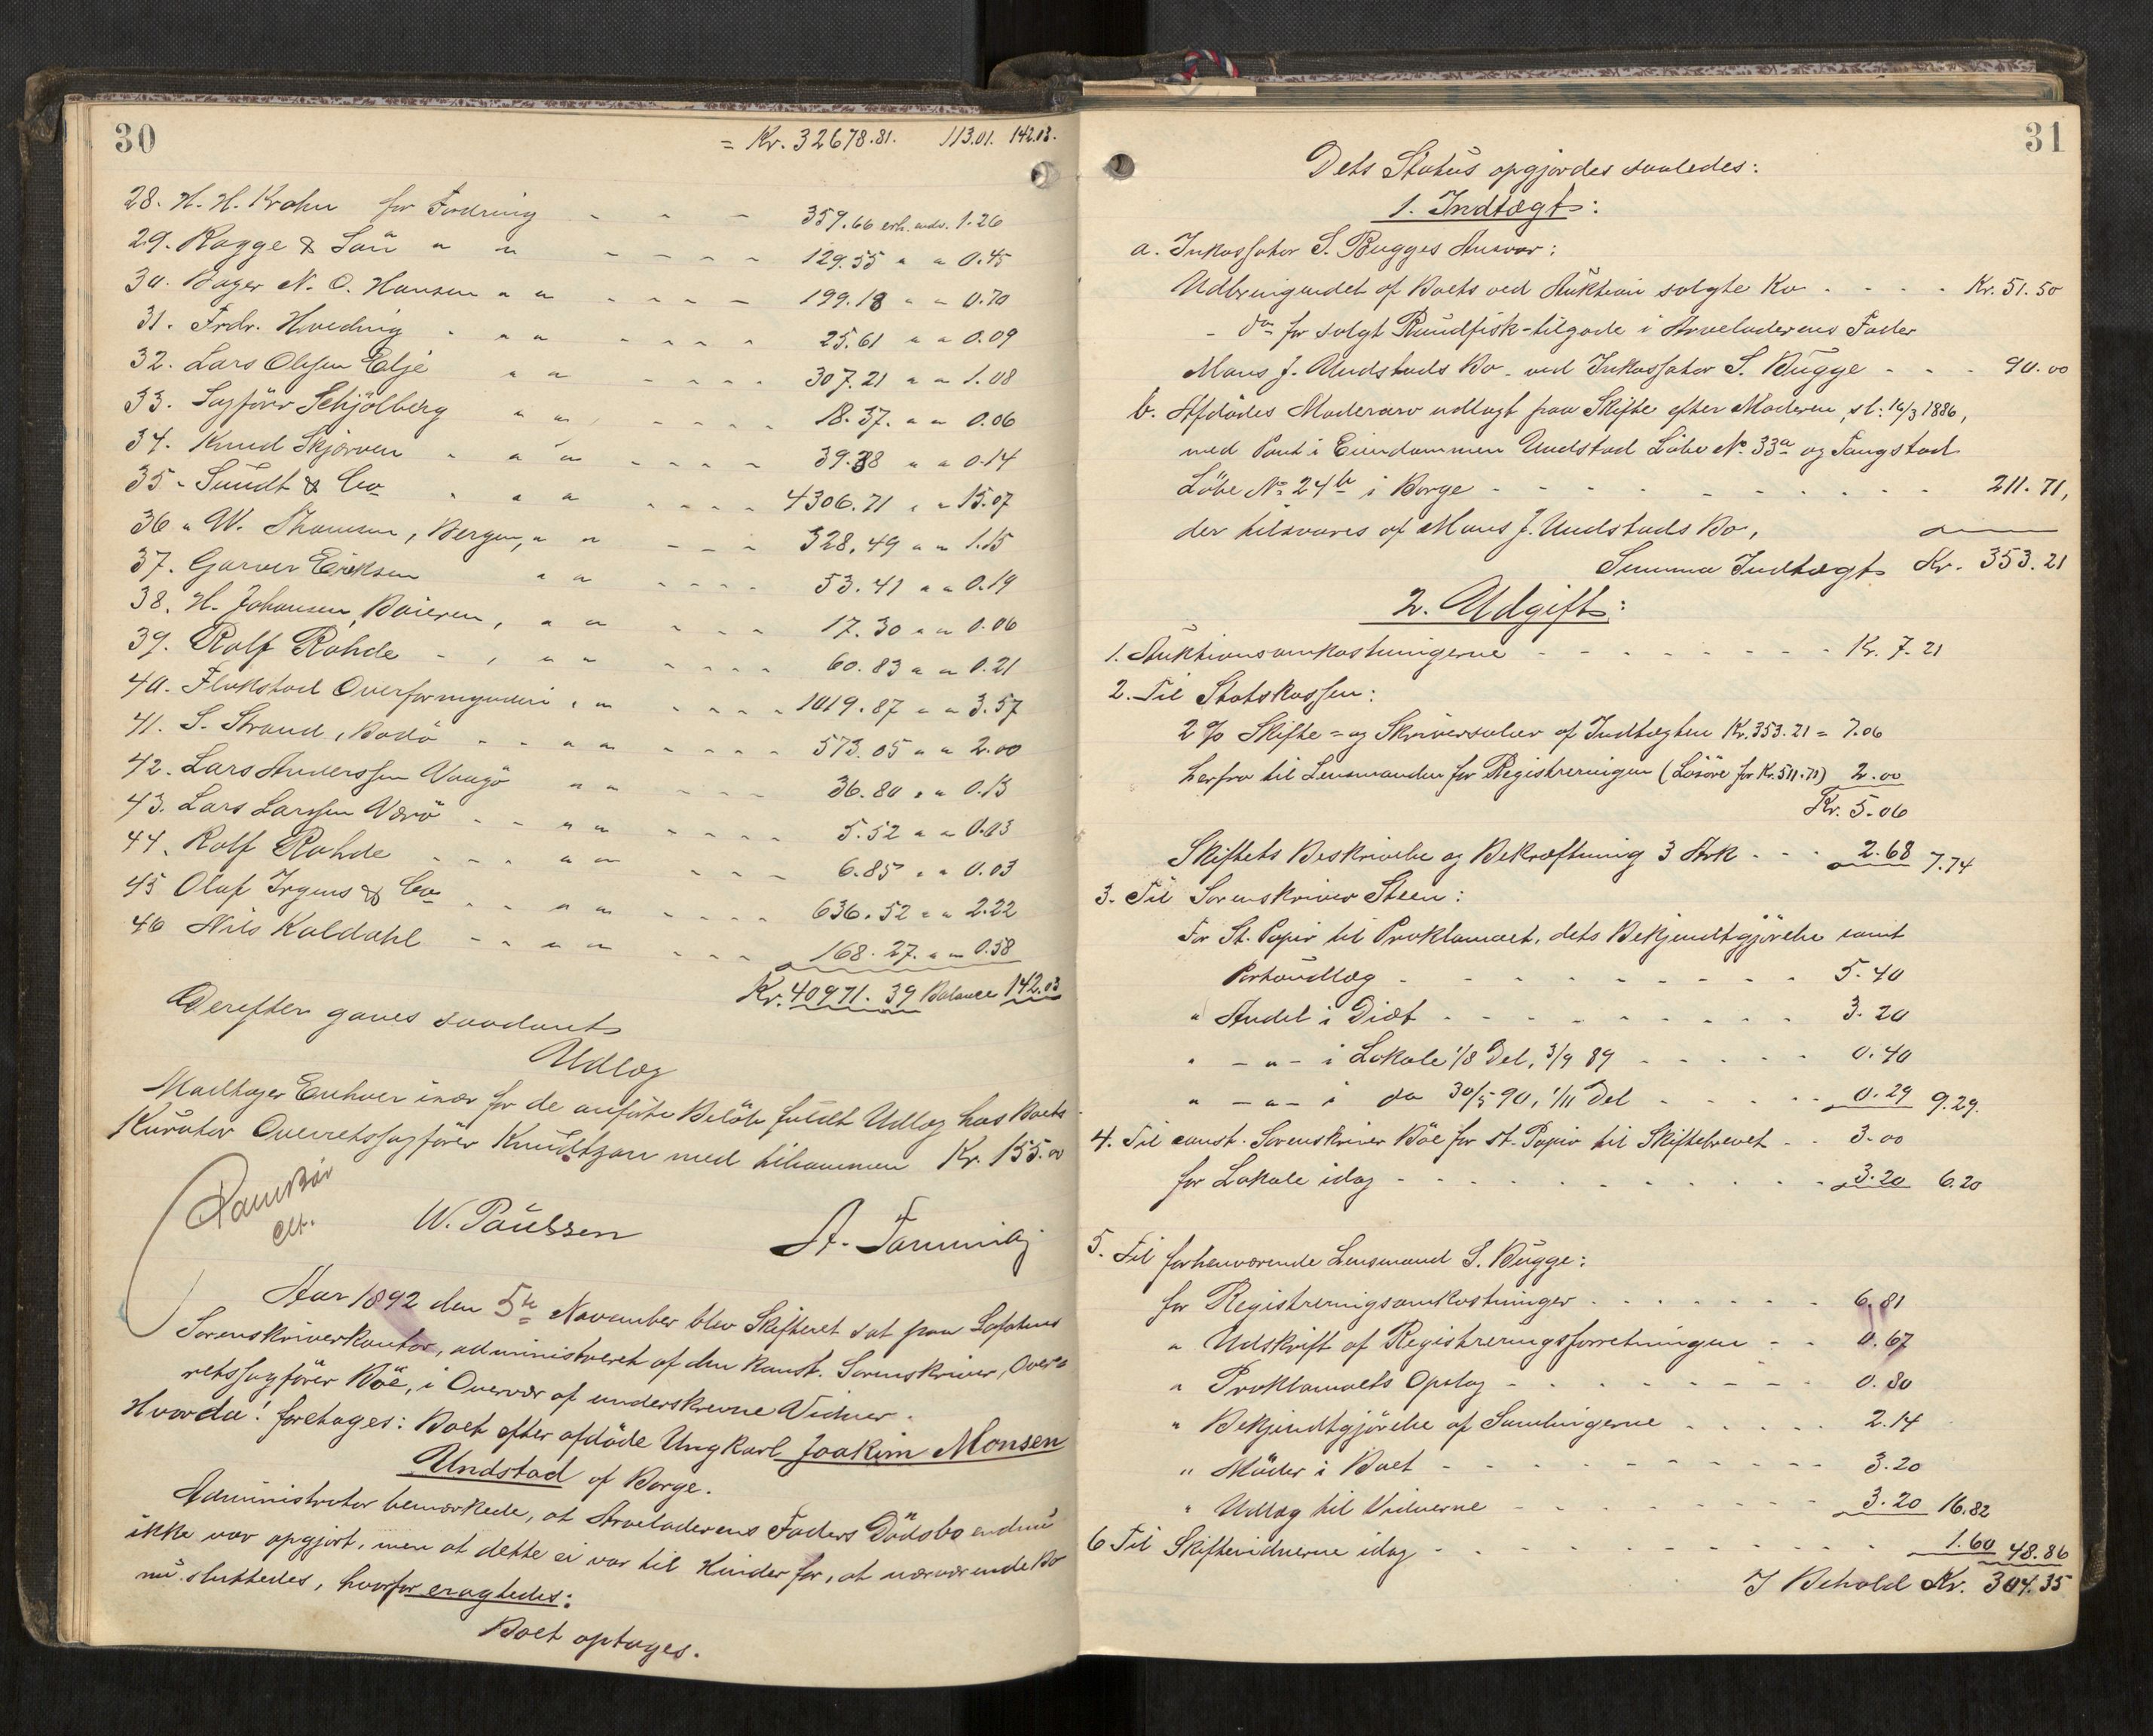 30
= Kr. 32678.81. 113.01. 142.13.
28. H. H. Krohn for Fordring - - - 359.66 erh. udv. 1.26
29. Kagge & Søn " " - - - - 129.55 " " 0.45
30. Bager N. O. Hansen " " - - - - 199.18 " " 0.70
31. Frdr. Hveding " " " - - - - 25.61 " " 0.09
32. Lars Olsen Elje " " - - - - 307.21 " " 1.08
33. Sagfører Schjølberg " " - - - - 18.37. " " 0.06
34. Knud Skjørven " " " - - - - 39.38 " " 0.14
35 - Sundt & Co " " " - - - - 4306.71 " " 15.07
36 " W. Thomsen, Bergen, " " - - - 328.49 " " 1.15
37. Garver Eriksen " " - - - - 53.41 " " 0.19
38. H. Johansen, Baieren, " " - - - 17.30 " " 0.06
39. Rolf Rohde - , " " - - - - 60.83 " " 0.21
40. Flakstad Overformynderi " " - - - - 1019.87 " " 3.57
41. S. Strand, Bodø - - " " - - - - 573.05 " " 2.00
42. Lars Anderssen Vaagø " " - - - 36.80 " " 0.13
43. Lars Larssen Værø - - " " - - - - 5.52 " " 0.03
44. Rolf Rohde - - - " " - - - 6.85 " " 0.03
45 Olaf Irgens & Co - - " " - - - - 636.52 " " 2.22
46 Nils Kaldahl - - " " - - - 168.27. " " 0.58
Kr. 40971.39 Balance 142.03
Derefter gaves saadant
Udlæg
Modtager Enhver især for de anførte Beløb fuldt Udlæg hos Boets
Kurator Overretssagfører Knudtzon med tilsammen Kr. 155.00
W. Paulssen
Aar 1892 den 5te November blev Skifteret sat paa Lofotens
Sorenskriverkontor, administreret af den konst. Sorenskriver, Over=
retssagfører Böe, i Overvær af underskrevne Vidner.
Hvorda! foretoges: Boet efter afdøde Ungkarl Joakim Monsen
Undstad af Borge.
Administrator bemærkede, at Arveladerens Faders Dødsbo endnu
ikke var opgjort, men at dette ei var til Hinder for, at nærværende Bo
nu sluttedes, hvorfor eragtedes:
Boet optages.
31
Dets Status opgjordes saaledes:
1. Indtægt:
a. Inkassator S. Bugges Ansvar:
Udbringendet af Boets ved Auktion solgte Ko - - - - Kr. 51.50
- do for solgt Rundfisk-tilgode i Arveladerens Fader
Mons J. Undstads Bo - ved Inkassator S. Bugge - - - 90.00
b. Afdødes Moderarv udlagt paa Skifte efter Moderen, sl: 16/3 1886,
med Pant i Eiendommen Undstad Løbe No 33a og Tangstad
Løbe No 24b i Borge - - - - - - - - - - - 211.71,
der tilsvares af Mons J. Undstads Bo,
Summa Indtægt Kr. 353.21
2. Udgift:
1. Auktionsomkostningerne - - - - - - - - Kr. 7.21
2. Til Statskassen:
2 % Skifte= og Skriversalær af Indtægten Kr. 353.21 = 7.06
herfra til Lensmanden for Registreringen (Løsøre for Kr. 511.71) 2.00
Kr. 5.06
Skiftets Beskrivelse og Bekræftning 3 Ark - - - 2.68 7.74
3. Til Sorenskriver Steen:
For St. Papir til Proklamaet, dets Bekjendtgjørelse samt
Portoudlæg - - - - - - - - - - 5.40
" Andel i Diæt - - - - - - - - - - 3.20
" - " - i Lokale 1/8 Del, 3/9 89 - - - - - 0.40
" - " - i do 30/5 90, 1/11 Del - - - - - 0.29 9.29.
4. Til const. Sorenskriver Böe for st. Papir til Skiftebrevet - - 3.00
for Lokale idag - - - - - - - - - - - 3.20 6.20
5. Til forhenværende Lensmand S. Bugge:
for Registreringsomkostninger - - - - - - - 6.81
" Udskrift af Registreringsforretningen - - 0.67
" Proklamaets Opslag - - - - - - - - - 0.80
" Bekjendtgjørelse af Samlingerne - - - - - 2.14
" Møder i Boet - - - - - - - - - - - 3.20
" Udlæg til Vidnerne - - - - - - - - - 3.20 16.82
6 Til Skiftevidnerne idag - - - - - - - - - - - 1.60 48.86
I Behold Kr. 304.35